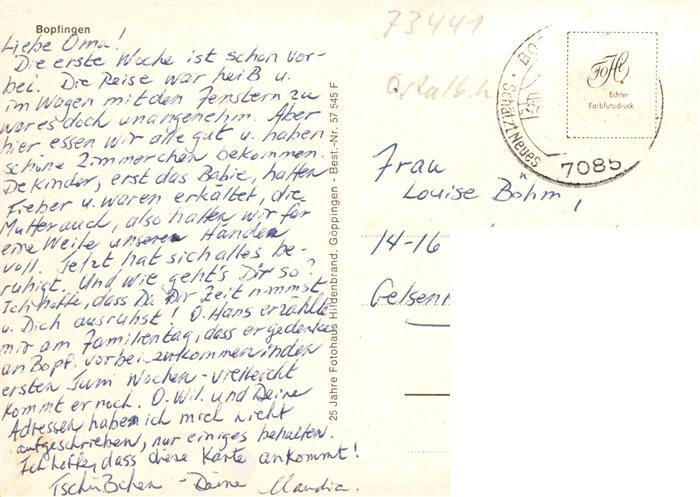 Bopfingen
Liebe Oma!
Die erste Woche ist schon vor-
bei. Die Reise war heiß u.
im Wagen mit den Fenstern zu
war es doch unangenehm. Aber
hier essen wir alle gut u. haben
schöne Zimmerchen bekommen.
Die Kinder, erst das Babie, hatten
Fieber u. waren erkältet, die
Mutter auch, also hatten wir für
eine Weile unseren Händen
voll. Jetzt hat sich alles be-
ruhigt. Und wie geht's Dir so?
Ich hoffe, dass Du Dir Zeit nimmst
u. Dich ausruhst! O. Hans erzählte
mir am Familientag, dass er gedenke
an Bopf. vorbei zu kommen in den
ersten Juni Wochen - vielleicht
kommt er noch. O. Wil. und Deine
Adressen haben ich mich nicht
aufgeschrieben, nur einiges behalten.
Ich hoffe, dass diese Karte ankommt!
Tschüßchen - Deine Claudia.
25 Jahre Fotohaus Hildenbrand, Göppingen - Best.-Nr. 57 545 F
73441
Ostalb.k
BO
Schätzt Neues
7085
FoHi
Echter
Farbfotodruck
Frau
Louise Böhm,
14-16
Gelsen